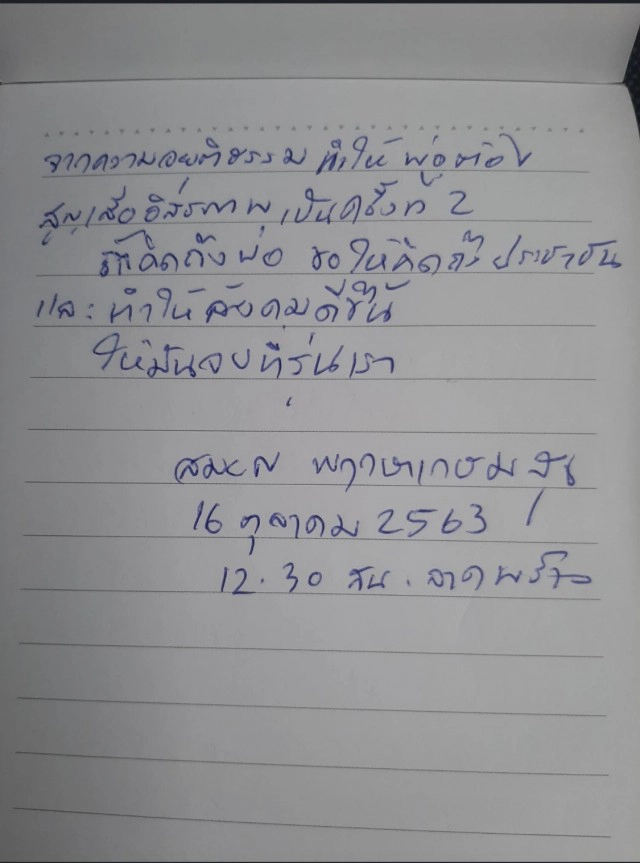 จากความอยุติธรรม ทำให้ พ่อต้อง
สูญเสียอิสรภาพ เป็นครั้งที่ 2
รักคิดถึงพ่อ ขอให้คิดถึง ประชาชน
และ ทำให้ สังคมดีขึ้น
ให้มันจบที่รุ่นเรา
สมยศ พฤกษาเกษมสุข
16 ตุลาคม 2563
12.30 สน. ลาดพร้าว